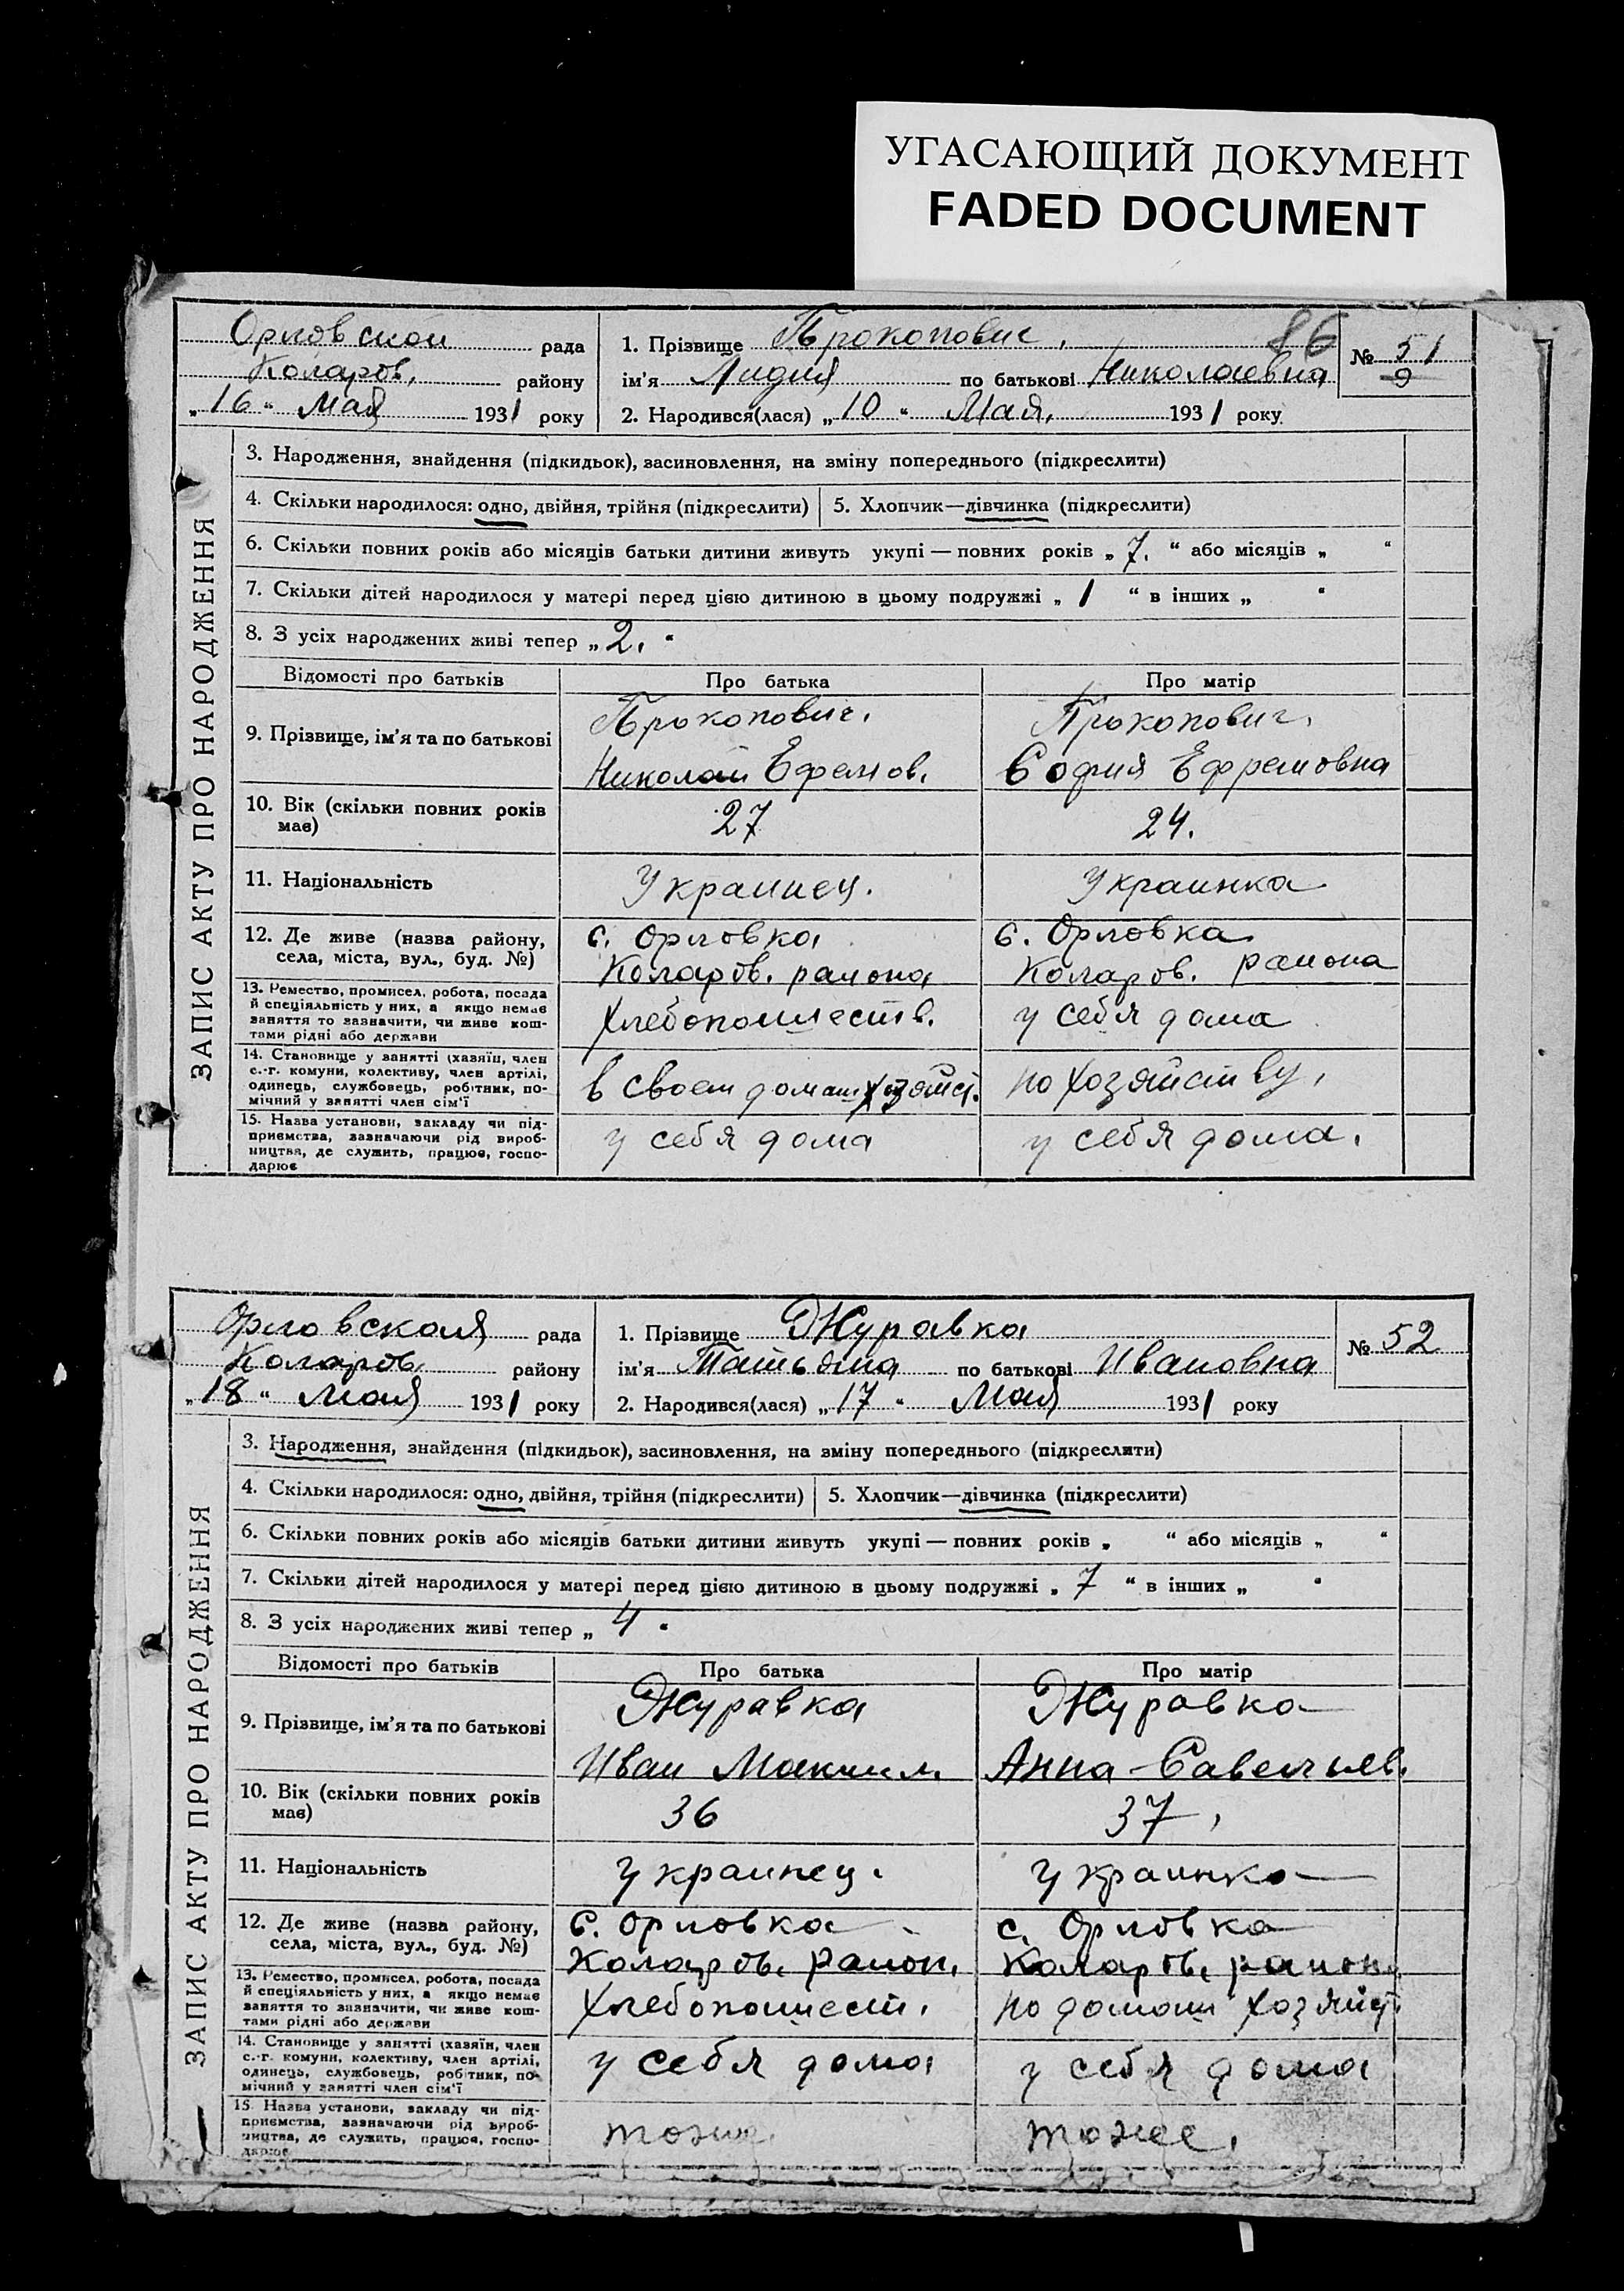 УГАСАЮЩИЙ ДОКУМЕНТ
FADED DOCUMENT
Орловской рада
Коларов. району
„16“ Мая 1931 року
1. Прізвище Прокопович. 86
ім’я Лидия по батькові Николаевна
2. Народився(лася) „10“ Мая. 1931 року
№ 51
9
ЗАПИС АКТУ ПРО НАРОДЖЕННЯ
3. Народження, знайдення (підкидьок), засиновлення, на зміну попереднього (підкреслити)
4. Скільки народилося: одно, двійня, трійня (підкреслити) 5. Хлопчик—дівчинка (підкреслити)
6. Скільки повних років або місяців батьки дитини живуть укупі — повних років „7.“ або місяців „ “
7. Скільки дітей народилося у матері перед цією дитиною в цьому подружжі „1“ в інших „ “
8. З усіх народжених живі тепер „2.“
Відомості про батьків Про батька Про матір
9. Прізвище, ім’я та по батькові
Прокопович.
Николай Ефремов.
Прокопович.
София Ефремовна
10. Вік (скільки повних років
має)
27
24.
11. Національність
Украинец.
Украинка
12. Де живе (назва району,
села, міста, вул., буд. №)
с. Орловка
Коларов. района
с. Орловка
Коларов. района
13. Ремество, промисел, робота, посада
й спеціяльність у них, а якщо немає
заняття то зазначити, чи живе кош-
тами рідні або держави
Хлебопашеств.
у себя дома
14. Становище у занятті (хазяїн, член
с.-г. комуни, колективу, член артілі,
одинець, службовець, робітник, по-
мічний у занятті член сім’ї
в своем домаш. хозяйст.
по хозяйству.
15. Назва установи, закладу чи під-
приємства, зазначаючи рід вироб-
ництва, де служить, працює, госпо-
дарює
у себя дома
у себя дома.
Орловская рада
Коларов. району
„18“ Мая 1931 року
1. Прізвище Журавка
ім’я Татьяна по батькові Ивановна
2. Народився(лася) „17“ Мая 1931 року
№ 52
ЗАПИС АКТУ ПРО НАРОДЖЕННЯ
3. Народження, знайдення (підкидьок), засиновлення, на зміну попереднього (підкреслити)
4. Скільки народилося: одно, двійня, трійня (підкреслити) 5. Хлопчик—дівчинка (підкреслити)
6. Скільки повних років або місяців батьки дитини живуть укупі — повних років „ “ або місяців „ “
7. Скільки дітей народилося у матері перед цією дитиною в цьому подружжі „7“ в інших „ “
8. З усіх народжених живі тепер „4“
Відомості про батьків Про батька Про матір
9. Прізвище, ім’я та по батькові
Журавка
Иван Максим.
Журавка
Анна Савельев.
10. Вік (скільки повних років
має)
36
37.
11. Національність
Украинец.
Украинка
12. Де живе (назва району,
села, міста, вул., буд. №)
с. Орловка
Коларов. район.
с. Орловка
Коларов. район.
13. Ремество, промисел, робота, посада
й спеціяльність у них, а якщо немає
заняття то зазначити, чи живе кош-
тами рідні або держави
Хлебопашест.
по домаш хозяйст.
14. Становище у занятті (хазяїн, член
с.-г. комуни, колективу, член артілі,
одинець, службовець, робітник, по-
мічний у занятті член сім’ї
у себя дома
у себя дома
15. Назва установи, закладу чи під-
приємства, зазначаючи рід вироб-
ництва, де служить, працює, госпо-
дарює
тоже.
тоже.